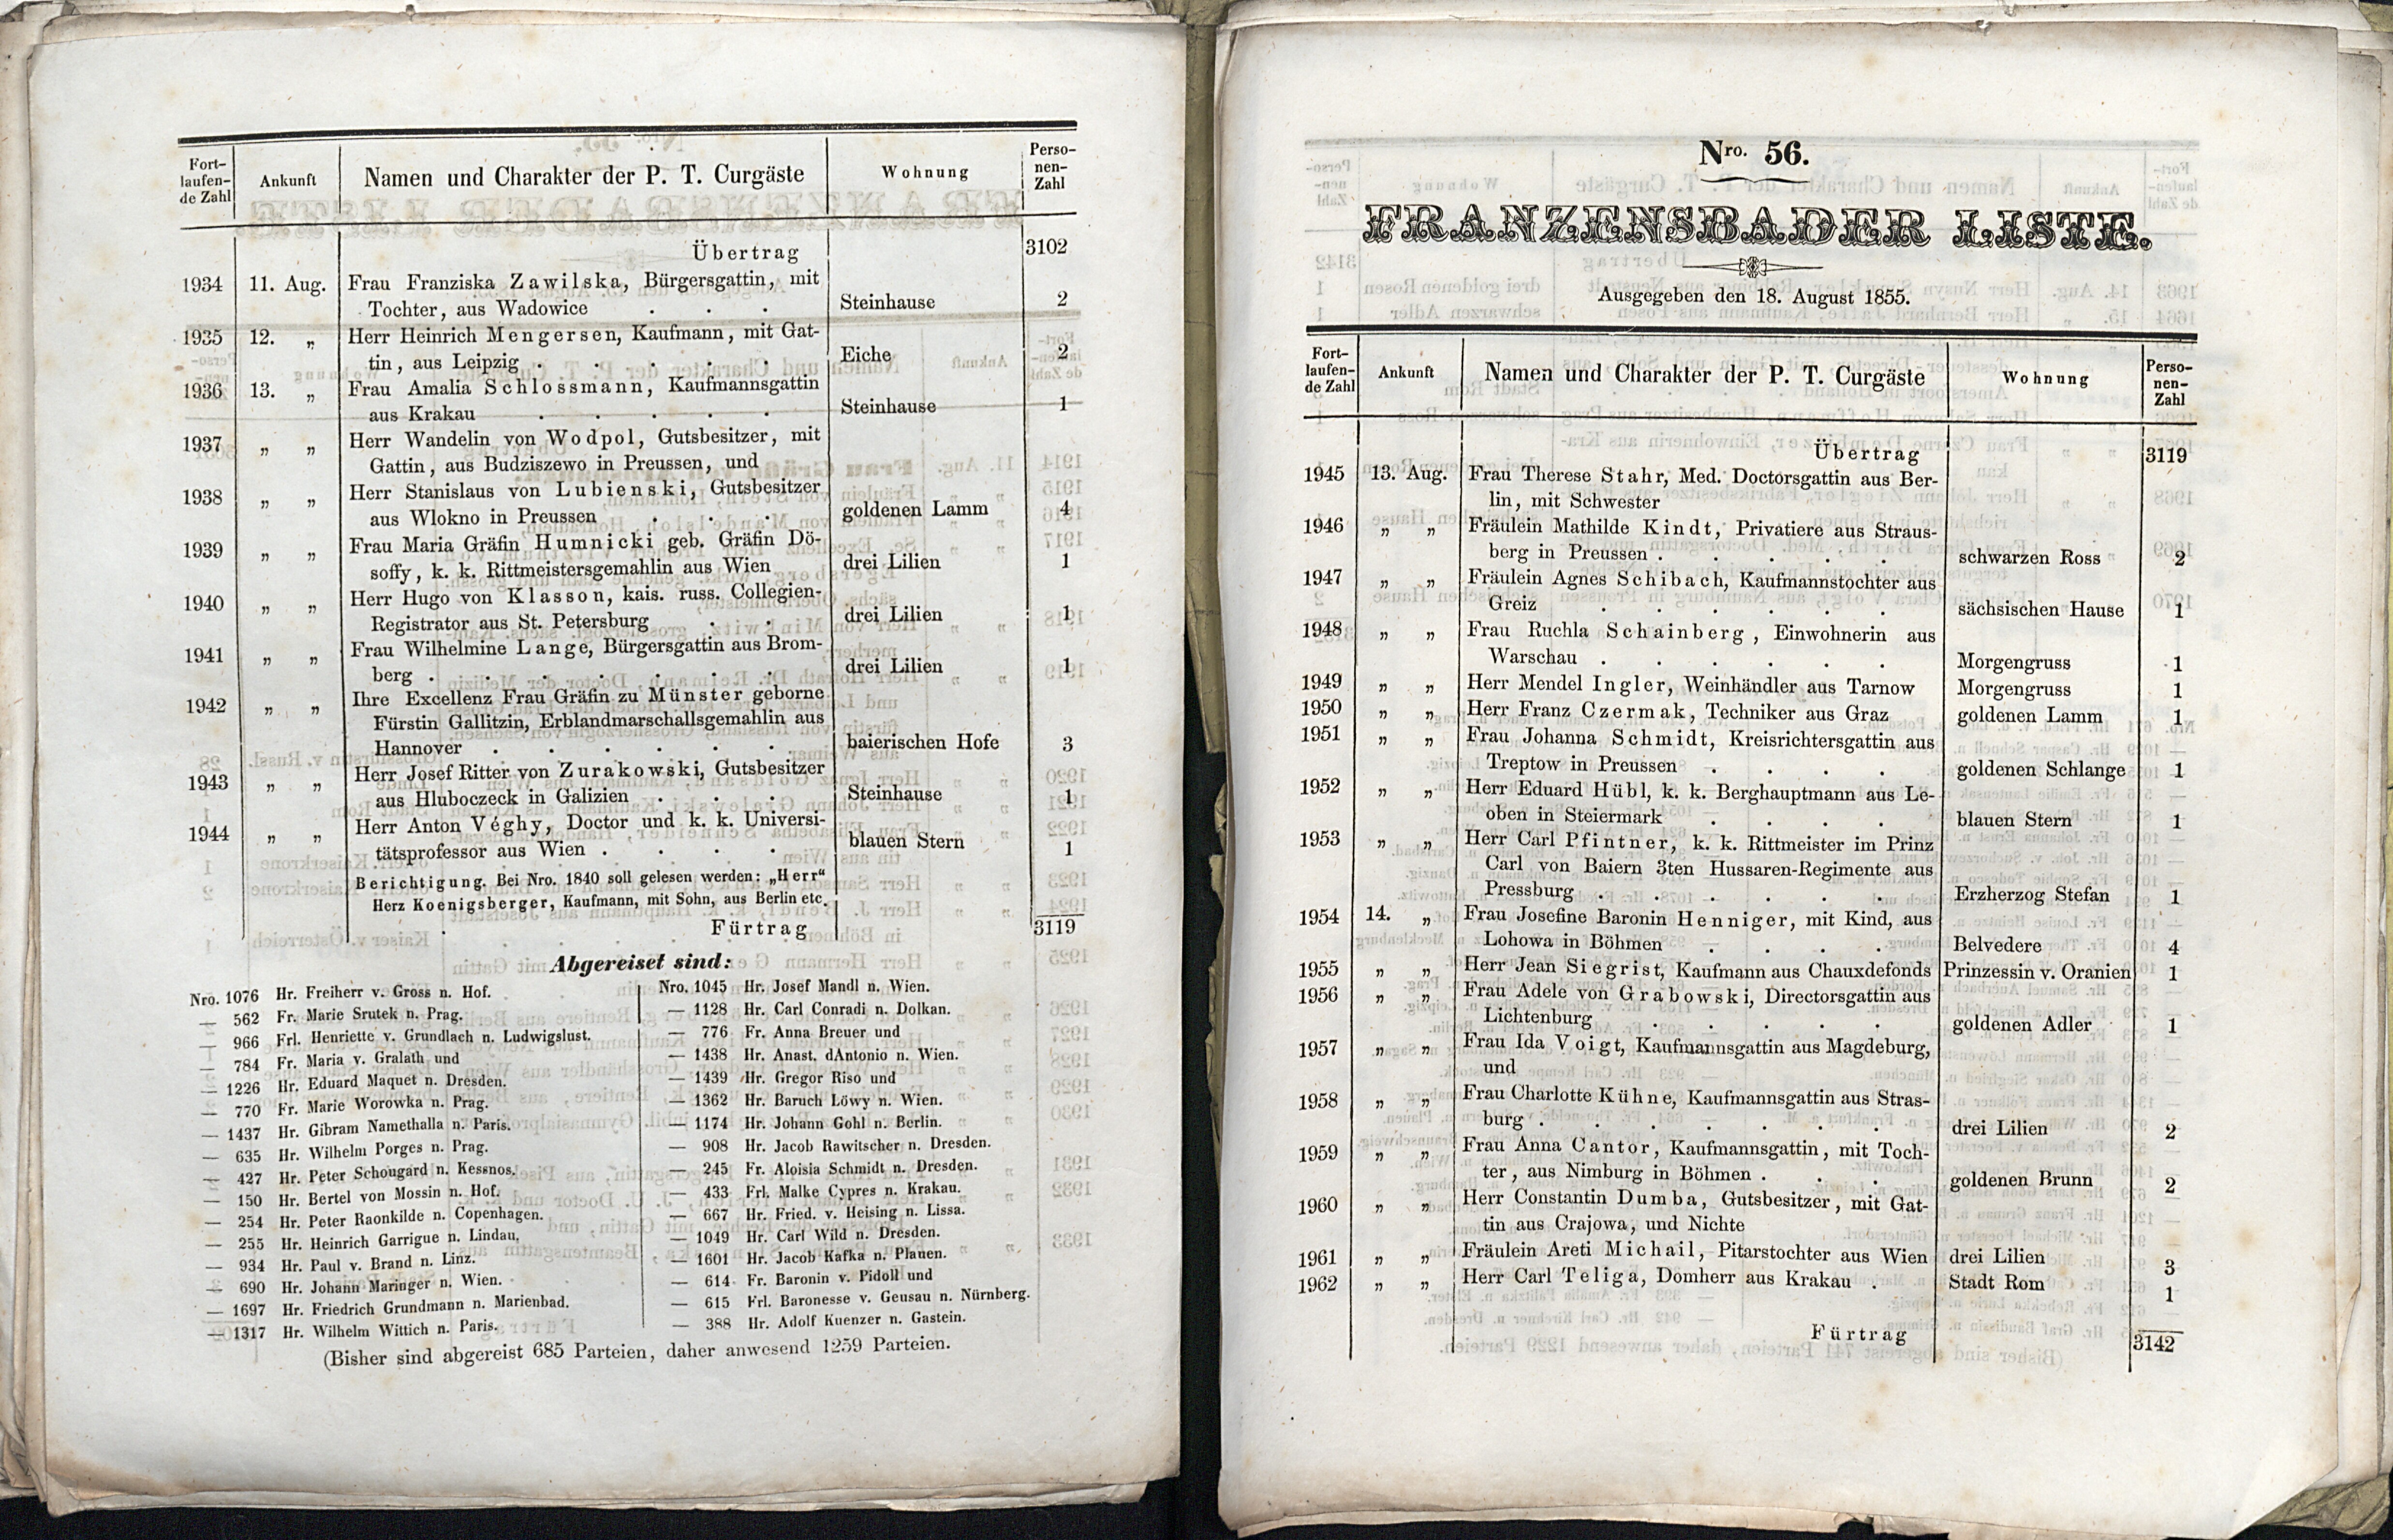 Fort-
laufen-
de Zahl
Ankunft
Namen und Charakter der P. T. Curgäste
Wohnung
Perso-
nen-
Zahl
Übertrag 3102
1934 11. Aug. Frau Franziska Zawilska, Bürgersgattin, mit
Tochter, aus Wadowice . . . Steinhause 2
1935 12. „ Herr Heinrich Mengersen, Kaufmann, mit Gat-
tin, aus Leipzig . . . . . Eiche 2
1936 13. „ Frau Amalia Schlossmann, Kaufmannsgattin
aus Krakau . . . . . Steinhause 1
1937 „ „ Herr Wandelin von Wodpol, Gutsbesitzer, mit
Gattin, aus Budziszewo in Preussen, und
1938 „ „ Herr Stanislaus von Lubienski, Gutsbesitzer
aus Wlokno in Preussen . . . goldenen Lamm 4
1939 „ „ Frau Maria Gräfin Humnicki geb. Gräfin Dö-
soffy, k. k. Rittmeistersgemahlin aus Wien drei Lilien 1
1940 „ „ Herr Hugo von Klasson, kais. russ. Collegien-
Registrator aus St. Petersburg . . drei Lilien 1
1941 „ „ Frau Wilhelmine Lange, Bürgersgattin aus Brom-
berg . . . . . . . drei Lilien 1
1942 „ „ Ihre Excellenz Frau Gräfin zu Münster geborne
Fürstin Gallitzin, Erblandmarschallsgemahlin aus
Hannover . . . . . . baierischen Hofe 3
1943 „ „ Herr Josef Ritter von Zurakowski, Gutsbesitzer
aus Hluboczeck in Galizien . . . Steinhause 1
1944 „ „ Herr Anton Véghy, Doctor und k. k. Universi-
tätsprofessor aus Wien . . . . blauen Stern 1
Berichtigung. Bei Nro. 1840 soll gelesen werden: „Herr“
Herz Koenigsberger, Kaufmann, mit Sohn, aus Berlin etc.
Fürtrag 3119
Abgereiset sind:
Nro. 1076 Hr. Freiherr v. Gross n. Hof.
— 562 Fr. Marie Srutek n. Prag.
— 966 Frl. Henriette v. Grundlach n. Ludwigslust.
— 784 Fr. Maria v. Gralath und
— 1226 Hr. Eduard Maquet n. Dresden.
— 770 Fr. Marie Worowka n. Prag.
— 1437 Hr. Gibram Namethalla n. Paris.
— 635 Hr. Wilhelm Porges n. Prag.
— 427 Hr. Peter Schougard n. Kessnos.
— 150 Hr. Bertel von Mossin n. Hof.
— 254 Hr. Peter Raonkilde n. Copenhagen.
— 255 Hr. Heinrich Garrigue n. Lindau.
— 934 Hr. Paul v. Brand n. Linz.
— 690 Hr. Johann Maringer n. Wien.
— 1697 Hr. Friedrich Grundmann n. Marienbad.
— 1317 Hr. Wilhelm Wittich n. Paris.
Nro. 1045 Hr. Josef Mandl n. Wien.
— 1128 Hr. Carl Conradi n. Dolkan.
— 776 Fr. Anna Breuer und
— 1438 Hr. Anast. dAntonio n. Wien.
— 1439 Hr. Gregor Riso und
— 1362 Hr. Baruch Löwy n. Wien.
— 1174 Hr. Johann Gohl n. Berlin.
— 908 Hr. Jacob Rawitscher n. Dresden.
— 245 Fr. Aloisia Schmidt n. Dresden.
— 433 Frl. Malke Cypres n. Krakau.
— 667 Hr. Fried. v. Heising n. Lissa.
— 1049 Hr. Carl Wild n. Dresden.
— 1601 Hr. Jacob Kafka n. Plauen.
— 614 Fr. Baronin v. Pidoll und
— 615 Frl. Baronesse v. Geusau n. Nürnberg.
— 388 Hr. Adolf Kuenzer n. Gastein.
(Bisher sind abgereist 685 Parteien, daher anwesend 1259 Parteien.
Nro. 56.
FRANZENSBADER LISTE.
Ausgegeben den 18. August 1855.
Fort-
laufen-
de Zahl
Ankunft
Namen und Charakter der P. T. Curgäste
Wohnung
Perso-
nen-
Zahl
Übertrag 3119
1945 13. Aug. Frau Therese Stahr, Med. Doctorsgattin aus Ber-
lin, mit Schwester
1946 „ „ Fräulein Mathilde Kindt, Privatiere aus Straus-
berg in Preussen . . . . . schwarzen Ross 2
1947 „ „ Fräulein Agnes Schibach, Kaufmannstochter aus
Greiz . . . . . . sächsischen Hause 1
1948 „ „ Frau Ruchla Schainberg, Einwohnerin aus
Warschau . . . . . . Morgengruss 1
1949 „ „ Herr Mendel Ingler, Weinhändler aus Tarnow Morgengruss 1
1950 „ „ Herr Franz Czermak, Techniker aus Graz goldenen Lamm 1
1951 „ „ Frau Johanna Schmidt, Kreisrichtersgattin aus
Treptow in Preussen . . . . goldenen Schlange 1
1952 „ „ Herr Eduard Hübl, k. k. Berghauptmann aus Le-
oben in Steiermark . . . . blauen Stern 1
1953 „ „ Herr Carl Pfintner, k. k. Rittmeister im Prinz
Carl von Baiern 3ten Hussaren-Regimente aus
Pressburg . . . . . . Erzherzog Stefan 1
1954 14. „ Frau Josefine Baronin Henniger, mit Kind, aus
Lohowa in Böhmen . . . . Belvedere 4
1955 „ „ Herr Jean Siegrist, Kaufmann aus Chauxdefonds Prinzessin v. Oranien 1
1956 „ „ Frau Adele von Grabowski, Directorsgattin aus
Lichtenburg . . . . . goldenen Adler 1
1957 „ „ Frau Ida Voigt, Kaufmannsgattin aus Magdeburg,
und
1958 „ „ Frau Charlotte Kühne, Kaufmannsgattin aus Stras-
burg . . . . . . . drei Lilien 2
1959 „ „ Frau Anna Cantor, Kaufmannsgattin, mit Toch-
ter, aus Nimburg in Böhmen . . . goldenen Brunn 2
1960 „ „ Herr Constantin Dumba, Gutsbesitzer, mit Gat-
tin aus Crajowa, und Nichte
1961 „ „ Fräulein Areti Michail, Pitarstochter aus Wien drei Lilien 3
1962 „ „ Herr Carl Teliga, Domherr aus Krakau . Stadt Rom 1
Fürtrag 3142